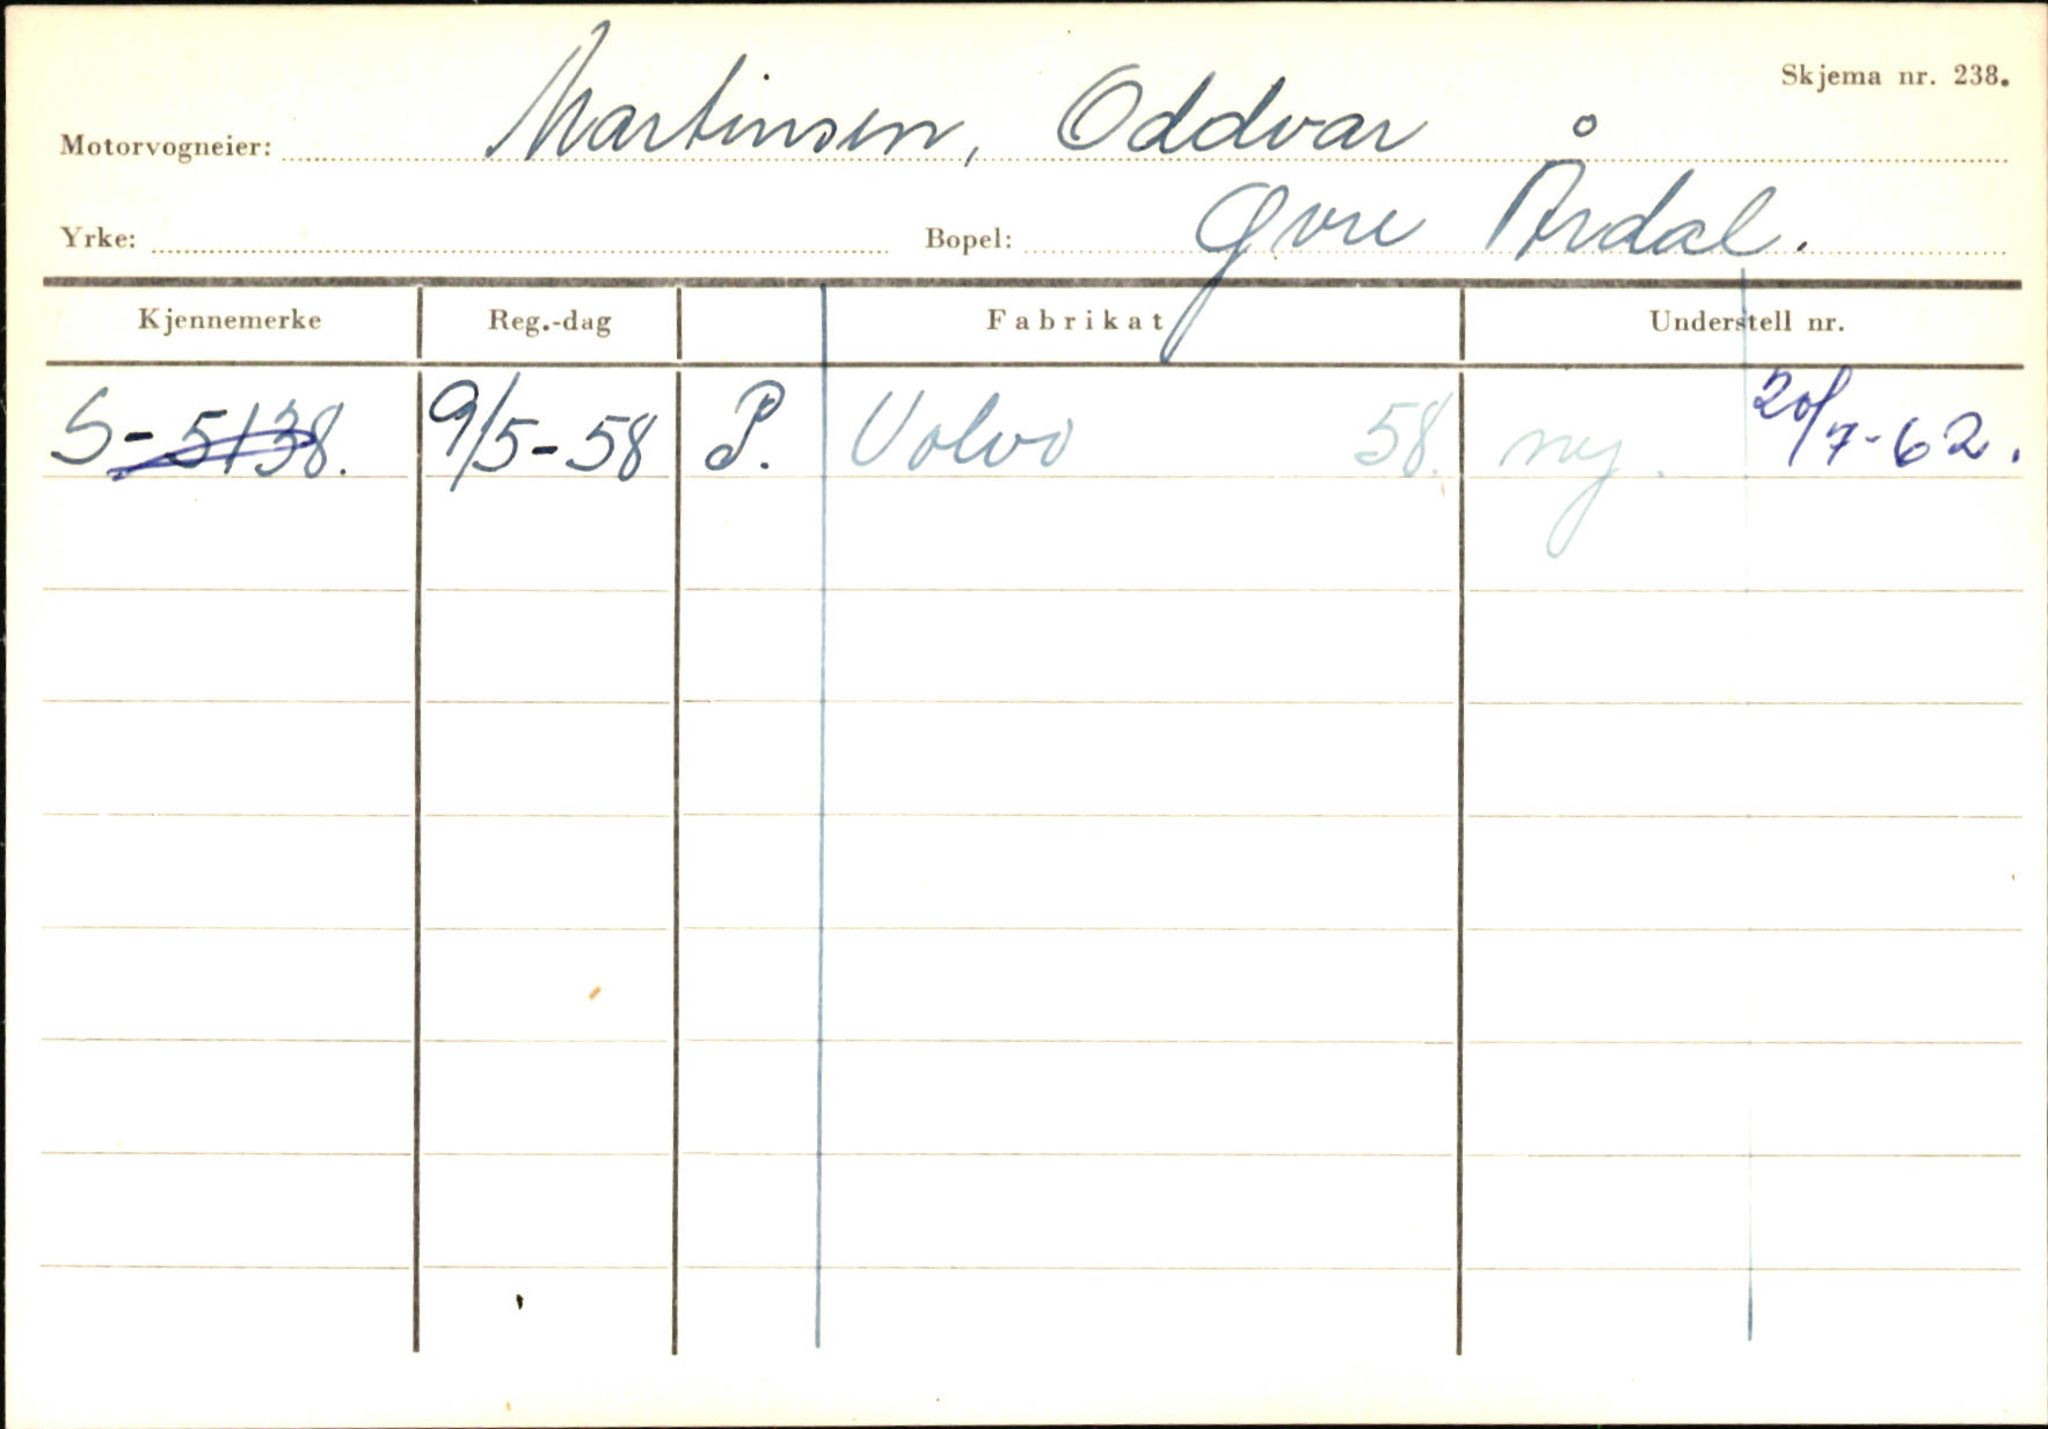 Skjema nr. 238.
Motorvogneier: Martinsen, Oddvar
Yrke: Bopel: Øvre Årdal.
Kjennemerke Reg.-dag Fabrikat Understell nr.
S-5138. 9/5-58 P. Volvo 58. ny. 20/7-62.